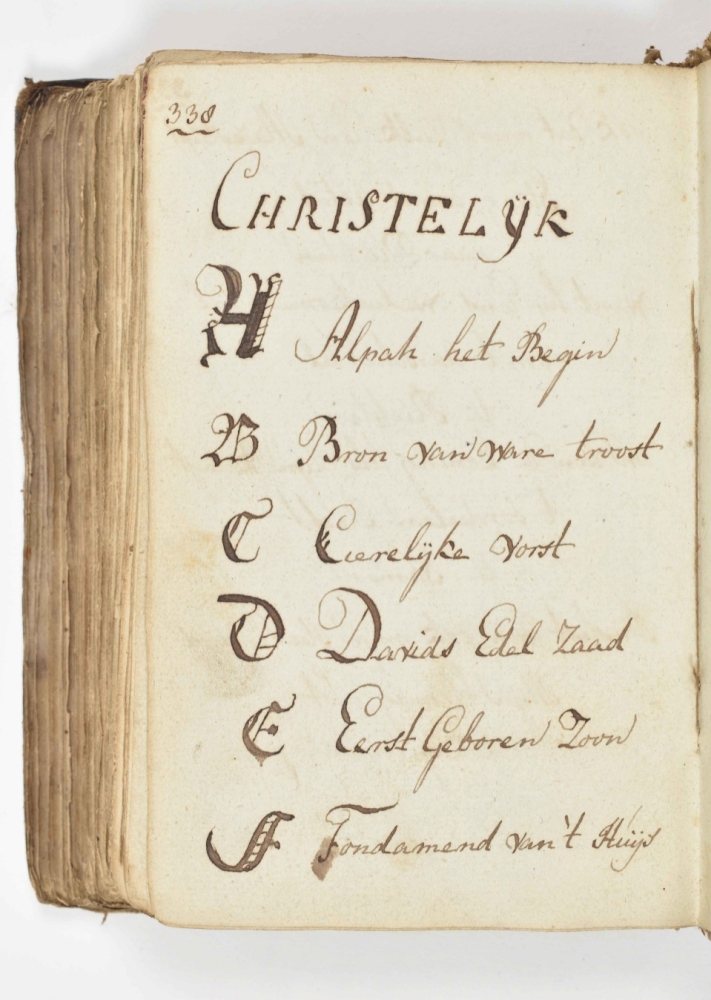 338
CHRISTELŸK
A Alpah het Begin
B Bron van ware troost
C Cierelÿke vorst
D Davids Edel Zaad
E Eerst Geboren Zoon
F Fondamend van't Huÿs